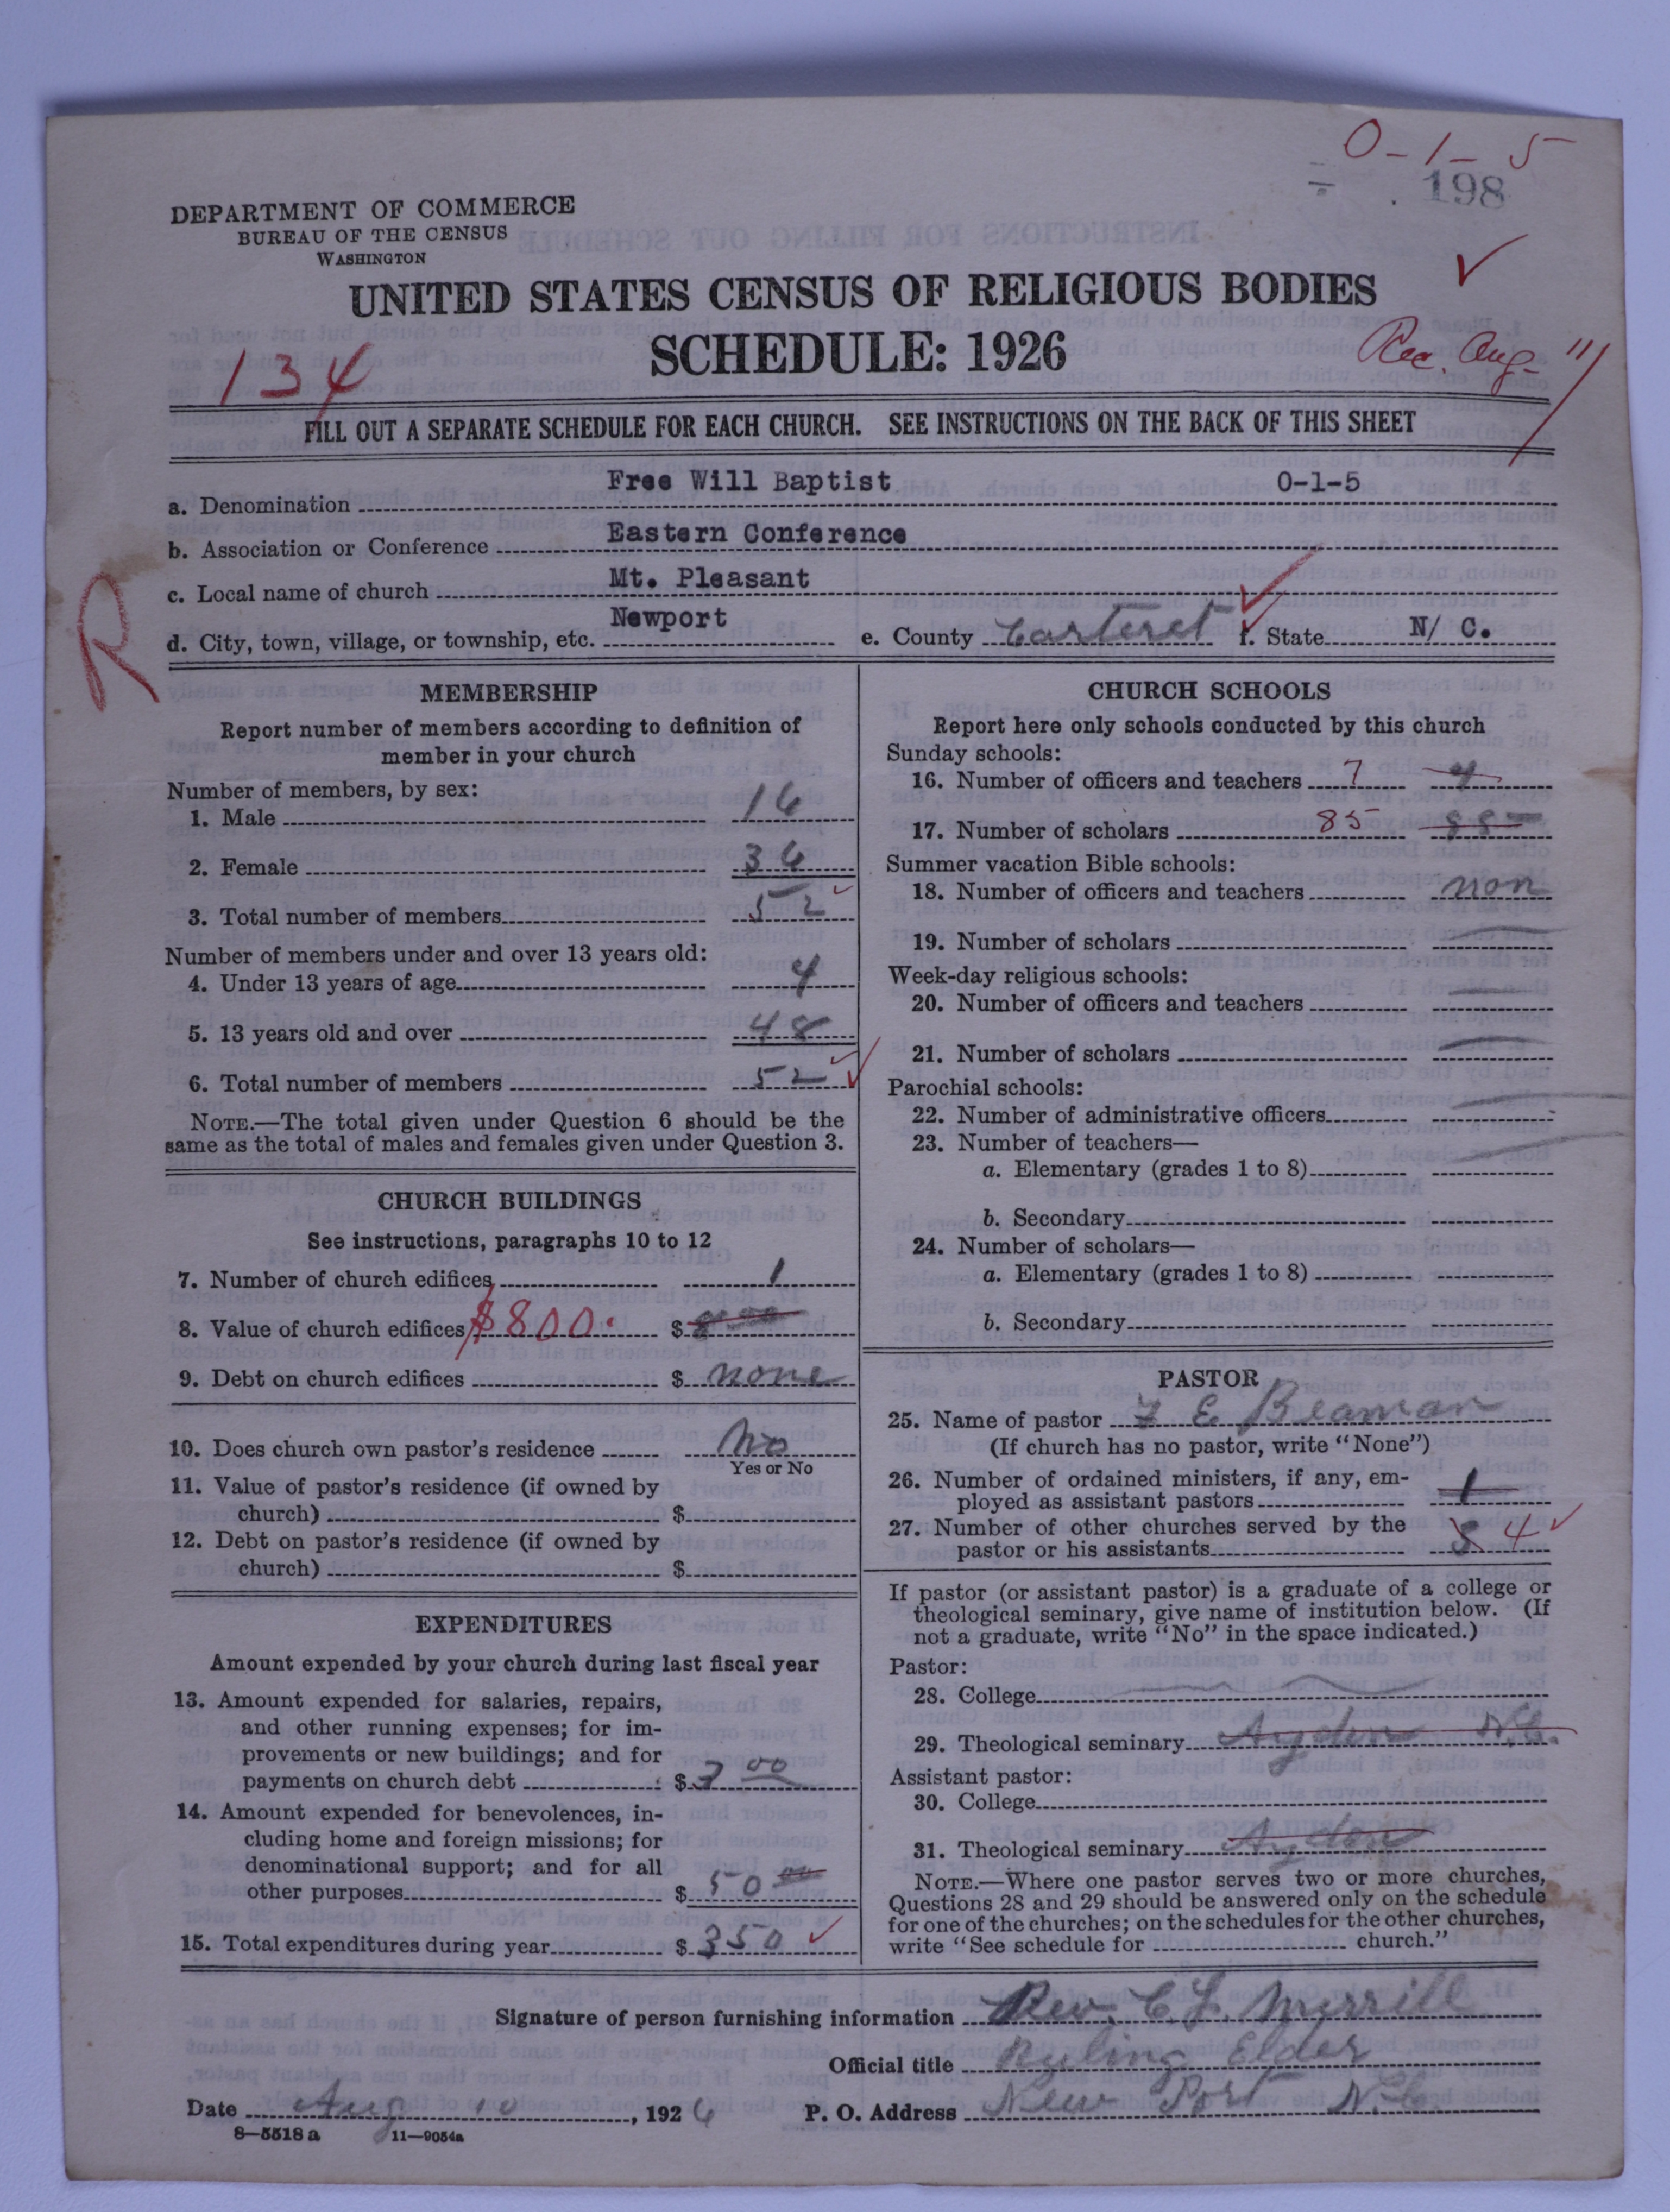 0-1-5
198
DEPARTMENT OF COMMERCE
BUREAU OF THE CENSUS
WASHINGTON
UNITED STATES CENSUS OF RELIGIOUS BODIES
SCHEDULE: 1926
134
Rec. Aug. 11
FILL OUT A SEPARATE SCHEDULE FOR EACH CHURCH. SEE INSTRUCTIONS ON THE BACK OF THIS SHEET
a. Denomination Free Will Baptist 0-1-5
b. Association or Conference Eastern Conference
c. Local name of church Mt. Pleasant
d. City, town, village, or township, etc. Newport e. County Carteret f. State N/ C.
R
MEMBERSHIP
Report number of members according to definition of
member in your church
Number of members, by sex:
1. Male 16
2. Female 36
3. Total number of members 52
Number of members under and over 13 years old:
4. Under 13 years of age 4
5. 13 years old and over 48
6. Total number of members 52
NOTE.—The total given under Question 6 should be the
same as the total of males and females given under Question 3.
CHURCH BUILDINGS
See instructions, paragraphs 10 to 12
7. Number of church edifices 1
8. Value of church edifices $800. $ 8 00
9. Debt on church edifices $ none
10. Does church own pastor's residence No
Yes or No
11. Value of pastor's residence (if owned by
church) $
12. Debt on pastor's residence (if owned by
church) $
EXPENDITURES
Amount expended by your church during last fiscal year
13. Amount expended for salaries, repairs,
and other running expenses; for im-
provements or new buildings; and for
payments on church debt $ 3 00
14. Amount expended for benevolences, in-
cluding home and foreign missions; for
denominational support; and for all
other purposes $ 50 00
15. Total expenditures during year $ 350
CHURCH SCHOOLS
Report here only schools conducted by this church
Sunday schools:
16. Number of officers and teachers 7 4
17. Number of scholars 85 85
Summer vacation Bible schools:
18. Number of officers and teachers non
19. Number of scholars
Week-day religious schools:
20. Number of officers and teachers
21. Number of scholars
Parochial schools:
22. Number of administrative officers
23. Number of teachers—
a. Elementary (grades 1 to 8)
b. Secondary
24. Number of scholars—
a. Elementary (grades 1 to 8)
b. Secondary
PASTOR
25. Name of pastor E Beaman
(If church has no pastor, write "None")
26. Number of ordained ministers, if any, em-
ployed as assistant pastors 1
27. Number of other churches served by the
pastor or his assistants 4
If pastor (or assistant pastor) is a graduate of a college or
theological seminary, give name of institution below. (If
not a graduate, write "No" in the space indicated.)
Pastor:
28. College
29. Theological seminary Ayden N.C.
Assistant pastor:
30. College
31. Theological seminary Ayden
NOTE.—Where one pastor serves two or more churches,
Questions 28 and 29 should be answered only on the schedule
for one of the churches; on the schedules for the other churches,
write "See schedule for church."
Signature of person furnishing information Rev. C. L. Merrill
Official title Ruling Elder
Date Aug 10, 1926 P. O. Address New Port N.C.
8—5518 a 11—9054a